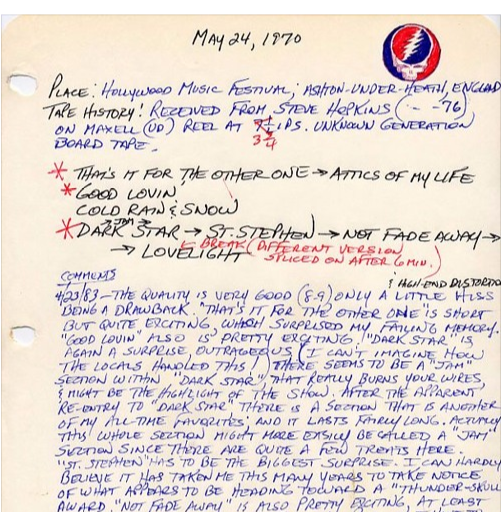 MAY 24, 1970
PLACE: HOLLYWOOD MUSIC FESTIVAL; ASHTON-UNDER-HEATH, ENGLAND
TAPE HISTORY: RECEIVED FROM STEVE HOPKINS ( - -76)
ON MAXELL (UD) REEL AT 7½ IPS. UNKNOWN GENERATION
3¾
BOARD TAPE.
* THAT'S IT FOR THE OTHER ONE → ATTICS OF MY LIFE
* GOOD LOVIN'
COLD RAIN & SNOW
→ JAM →
* DARK STAR → ST. STEPHEN → NOT FADE AWAY →
→ LOVELIGHT
BREAK (DIFFERENT VERSION
SPLICED ON AFTER 6 MIN.)
COMMENTS
& HIGH-END DISTORTO
4/23/83 – THE QUALITY IS VERY GOOD (8-9) ONLY A LITTLE HISS
BEING A DRAWBACK. "THAT'S IT FOR THE OTHER ONE" IS SHORT
BUT QUITE EXCITING, WHICH SURPRISED MY FAILING MEMORY.
"GOOD LOVIN'" ALSO IS PRETTY EXCITING! "DARK STAR" IS
AGAIN A SURPRISE, OUTRAGEOUS (I CAN'T IMAGINE HOW
THE LOCALS HANDLED THIS) THERE SEEMS TO BE A "JAM"
SECTION WITHIN "DARK STAR", THAT REALLY BURNS YOUR WIRES,
& MIGHT BE THE HIGHLIGHT OF THE SHOW. AFTER THE APPARENT
RE-ENTRY TO "DARK STAR" THERE IS A SECTION THAT IS ANOTHER
OF MY ALL-TIME FAVORITES; AND IT LASTS FAIRLY LONG. ACTUALLY
THIS WHOLE SECTION MIGHT MORE EASILY BE CALLED A "JAM"
SECTION SINCE THERE ARE QUITE A FEW TREATS HERE.
"ST. STEPHEN" HAS TO BE THE BIGGEST SURPRISE. I CAN HARDLY
BELIEVE IT HAS TAKEN ME THIS MANY YEARS TO TAKE NOTICE
OF WHAT APPEARS TO BE HEADING TOWARD A "THUNDER-SKULL
AWARD. "NOT FADE AWAY" IS ALSO PRETTY EXCITING, AT LEAST